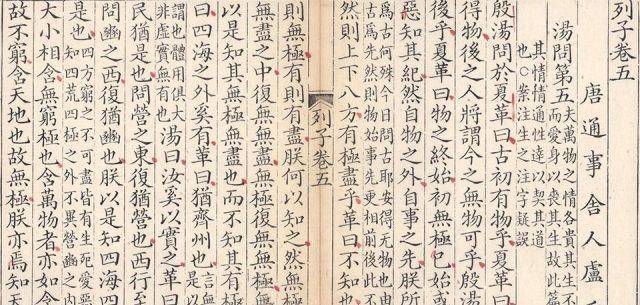 列子卷五
唐通事舍人盧
湯問第五
夫萬物之情各貴其生
而愛身以喪其生故此篇
其情情通性達以契其道
也○案注生之注字疑誤
殷湯問於夏革曰古初有物乎夏革曰
得物後之人將謂今之無物可乎殷湯
後乎夏革曰物之終始初無極已始或
惡知其紀然自物之外自事之先朕所
爲古何殊今日問古耶安得無物也由
爲古先然則物始事先更相前後此不
然則上下八方有極盡乎革曰不知也
列子卷五
則無極有則有盡朕何以知之然無
無盡之中復無無盡無極復無無極
以是知其無極無盡也而不知其有
曰四海之外奚有革曰猶齊州也言無
謂也體用俱大
非虛實無有也
湯曰汝奚以實之革曰
民猶是也問營之東復猶營也西行至
問豳之西復猶豳也朕以是知四海四
是也
四方窮之不可盡皆有生死愛惡
知四荒四極之外不異營豳之內
大小相含無窮極也含萬物者亦如
故不窮含天地也故無極朕亦焉知天